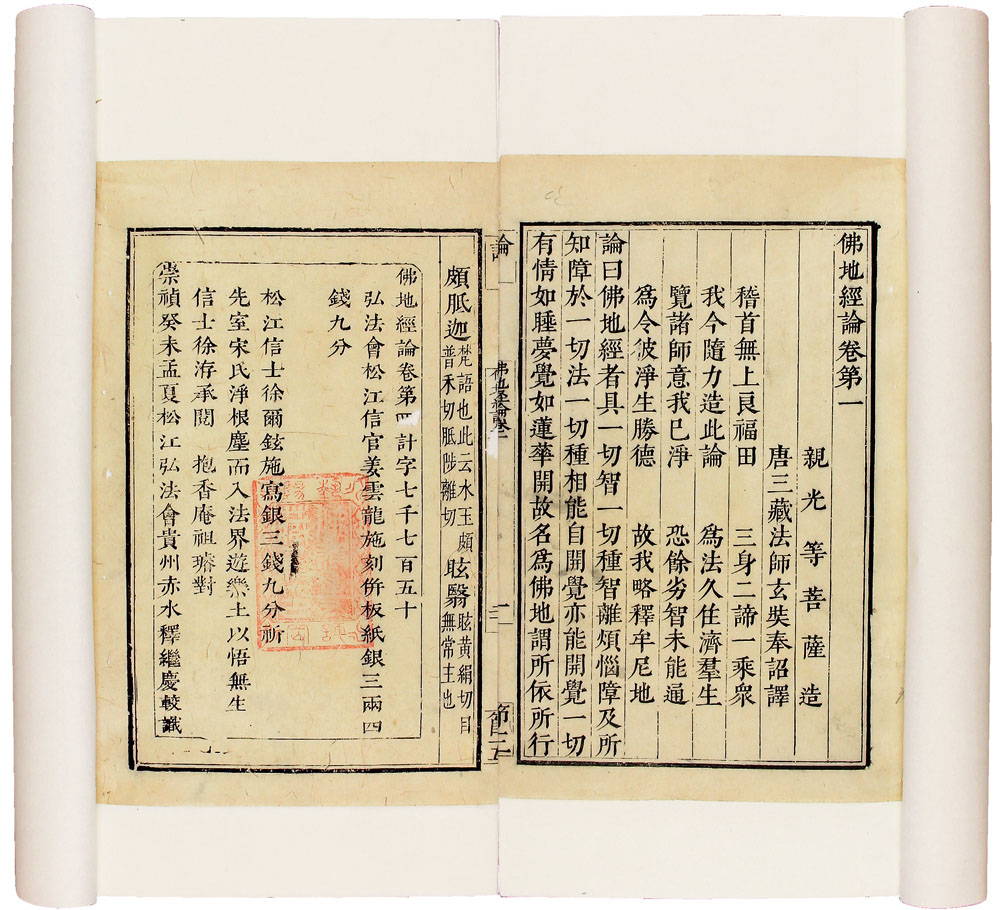 佛地經論卷第一
親光等菩薩造
唐三藏法師玄奘奉詔譯
稽首無上良福田　三身二諦一乘衆
我今隨力造此論　爲法久住濟羣生
覽諸師意我已淨　恐餘劣智未能通
爲令彼淨生勝德　故我略釋牟尼地
論曰佛地經者具一切智一切種智離煩惱障及所
知障於一切法一切種相能自開覺亦能開覺一切
有情如睡夢覺如蓮華開故名爲佛地謂所依所行
論
佛地經論卷一
頗胝迦梵語也此云水玉頗普禾切胝陟離切眩翳眩黄絹切目無常主也
佛地經論卷第四計字七千七百五十
弘法會松江信官姜雲龍施刻併板紙銀三兩四
錢九分
松江信士徐爾鉉施寫銀三錢九分祈
先室宋氏淨根塵而入法界遊樂土以悟無生
信士徐洊承閱　抱香庵祖璿對
崇禎癸未孟夏松江弘法會貴州赤水釋繼慶較識